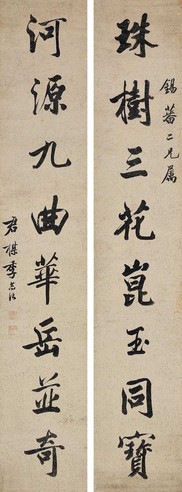 錫蕃二兄屬
珠樹三花崑玉同寶
河源九曲華岳並奇
君楳季